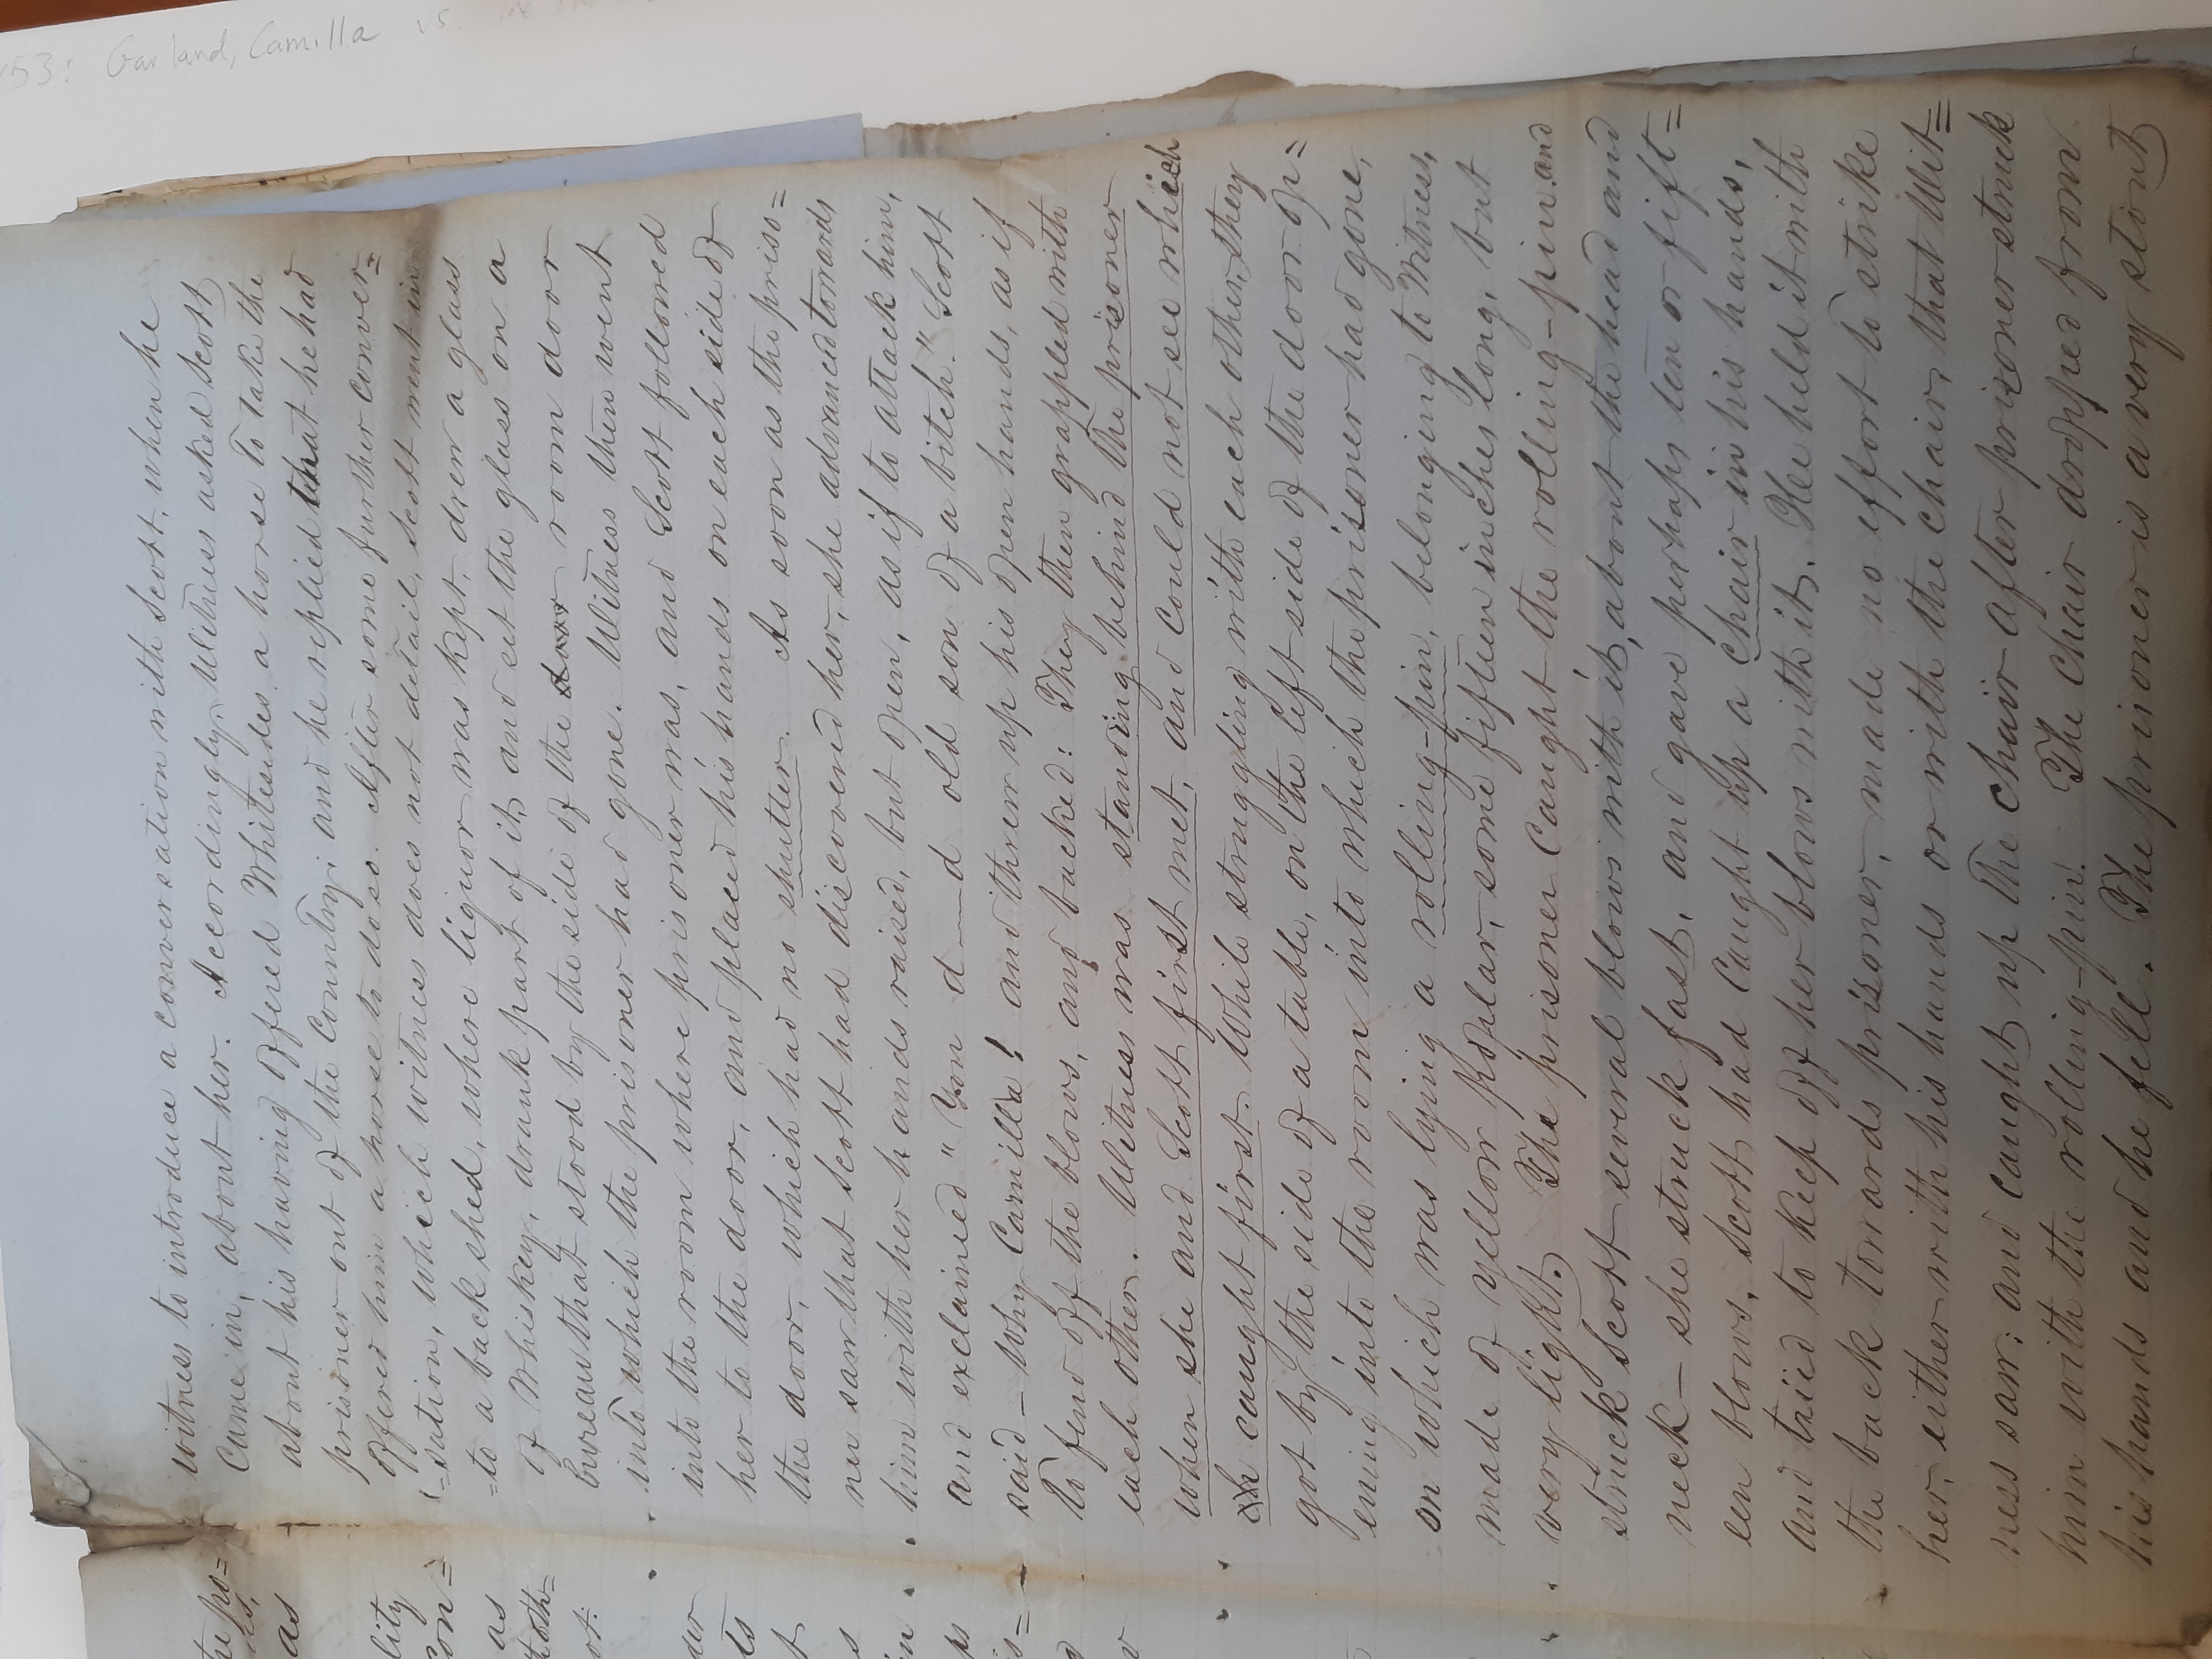 witness to introduce a conversation with Scott, when he
came in, about her. Accordingly, Witness asked Scott
about his having offered Whitesides a horse to take the
prisoner out of the Country; and he replied that he had
offered him a horse to do so. After some further conver=
=sation, which witness does not detail, Scott went in=
=to a back shed, where liquor was kept, drew a glass
of Whiskey, drank part of it, and set the glass on a
bureau that stood by the side of the door room door
into which the prisoner had gone. Witness then went
into the room where prisoner was, and Scott followed
her to the door, and placed his hands on each side of
the door, which had no shutter. As soon as the priso=
ner saw that Scott had discovered her, she advanced towards
him with her hands raised, but open, as if to attack him,
and exclaimeed "You d——d old son of a bitch." Scott
said – Why Camilla! and threw up his open hands, as if
to fend off the blows, and backed: They then grappled with
each other. Witness was standing behind the prisoner
when she and Scott first met, and could not see which
ch caught first. While struggling with each other, they
got by the side of a table, on the left side of the door op=
ening into the room into which the prisoner had gone,
on which was lying a rolling-pin, belonging to Witness,
made of yellow poplar, some fifteen inches long, but
very light. The prisoner caught the rolling-pin and
struck Scott several blows with it, about the head and
neck – she struck fast, and gave perhaps ten or fift=
een blows. Scott had caught up a chair in his hands,
and tried to keep off her blows with it. Hee held it with
the back towards prisoner, made no effort to strike
her, either with his hands or with the chair, that Wit=
ness saw; and caught up the chair after prisoner struck
him with the rolling-pin. The chair dropped from
his hands and he fell. The prisoner is a very stout
he po=
as
lity
con=
as
oth=
ot.
der
ts
t
s
in
ps
is=
Garland, Camilla vs